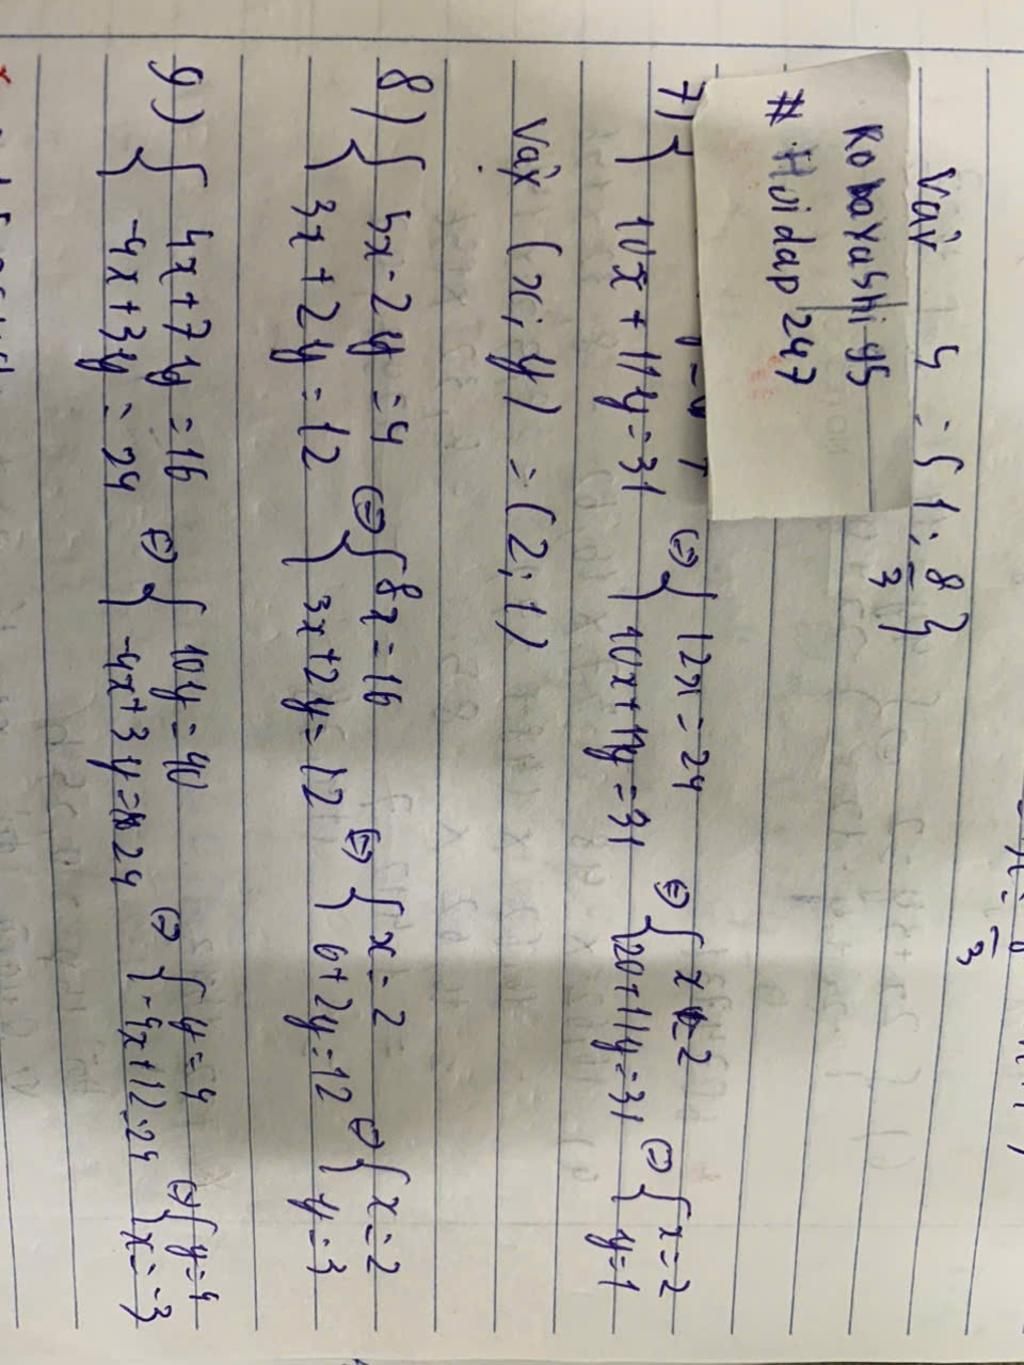 Vậy S = { 1; 8/3 }
Kobayashi 95
# Hoidap 247
7) { 10x + 11y = 31
⇔ { 12x = 24
10x + 11y = 31
⇔ { x = 2
20 + 11y = 31
⇔ { x = 2
y = 1
Vậy (x; y) = (2; 1)
8) { 5x - 2y = 4
3x + 2y = 12
⇔ { 8x = 16
3x + 2y = 12
⇔ { x = 2
6 + 2y = 12
⇔ { x = 2
y = 3
9) { 4x + 7y = 16
-4x + 3y = 24
⇔ { 10y = 40
-4x + 3y = 24
⇔ { y = 4
-4x + 12 = 24
⇔ { y = 4
x = -3